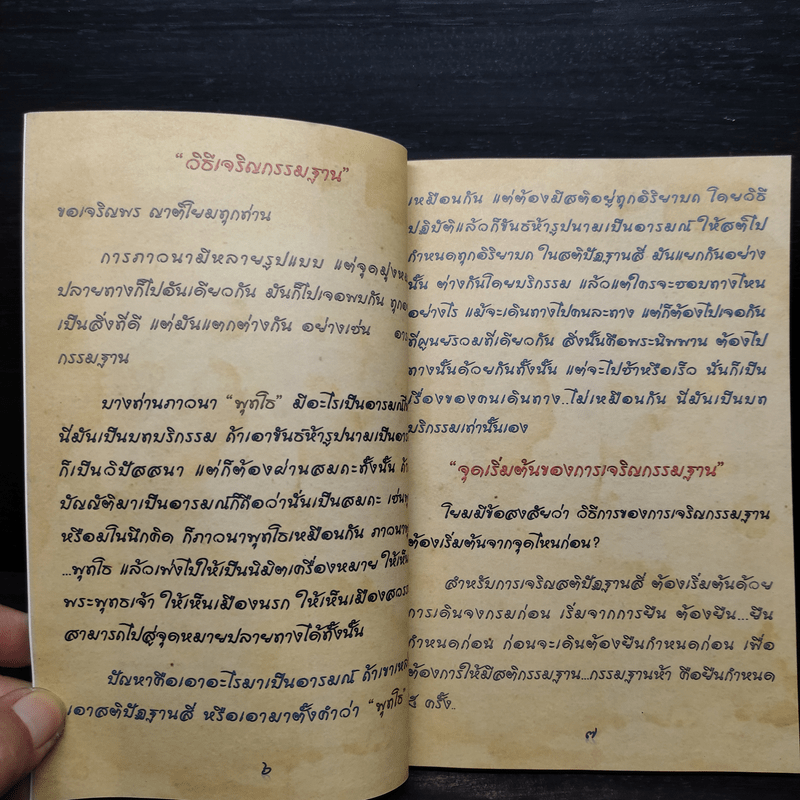 “วิธีเจริญกรรมฐาน”
ขอเจริญพร ญาติโยมทุกท่าน
การภาวนามีหลายรูปแบบ แต่จุดมุ่งหม
ปลายทางก็ไปอันเดียวกัน มันก็ไปเจอพบกัน ทุกอ
เป็นสิ่งที่ดี แต่มันแตกต่างกัน อย่างเช่น
กรรมฐาน
บางท่านภาวนา “พุทโธ” มีอะไรเป็นอารมณ์
นี่มันเป็นบทบริกรรม ถ้าเอาขันธ์ห้ารูปนามเป็นอาร
ก็เป็นวิปัสสนา แต่ก็ต้องผ่านสมถะทั้งนั้น ถ้า
บัญญัติมาเป็นอารมณ์ก็ถือว่านั่นเป็นสมถะ เช่น
หรือมโนนึกคิด ก็ภาวนาพุทโธเหมือนกัน ภาวนา
...พุทโธ แล้วเพ่งไปให้เป็นนิมิตเครื่องหมาย ให้เห็น
พระพุทธเจ้า ให้เห็นเมืองนรก ให้เห็นเมืองสวรร
สามารถไปสู่จุดหมายปลายทางได้ทั้งนั้น
ปัญหาคือเอาอะไรมาเป็นอารมณ์ ถ้าเขา
เอาสติปัฏฐานสี่ หรือเอามาตั้งคำว่า “พุทโธ”
๖
เหมือนกัน แต่ต้องมีสติอยู่ทุกอิริยาบถ โดยวิธี
ปฏิบัติแล้วก็ขันธ์ห้ารูปนามเป็นอารมณ์ ให้สติไป
กำหนดทุกอิริยาบถ ในสติปัฏฐานสี่ มันแยกกันอย่าง
นั้น ต่างกันโดยบริกรรม แล้วแต่ใครจะชอบทางไหน
อย่างไร แม้จะเดินทางไปคนละทาง แต่ก็ต้องไปเจอกัน
ที่ศูนย์รวมที่เดียวกัน สิ่งนั้นคือพระนิพพาน ต้องไป
ทางนั้นด้วยกันทั้งนั้น แต่จะไปช้าหรือเร็ว นั่นก็เป็น
เรื่องของคนเดินทาง..ไม่เหมือนกัน นี่มันเป็นบท
บริกรรมเท่านั้นเอง
“จุดเริ่มต้นของการเจริญกรรมฐาน”
โยมมีข้อสงสัยว่า วิธีการของการเจริญกรรมฐาน
ต้องเริ่มต้นจากจุดไหนก่อน?
สำหรับการเจริญสติปัฏฐานสี่ ต้องเริ่มต้นด้วย
การเดินจงกรมก่อน เริ่มจากการยืน ต้องยืน...ยืน
กำหนดก่อน ก่อนจะเดินต้องยืนกำหนดก่อน เพื่อ
ต้องการให้มีสติกรรมฐาน...กรรมฐานห้า คือยืนกำหนด
๕ ครั้ง..
๗